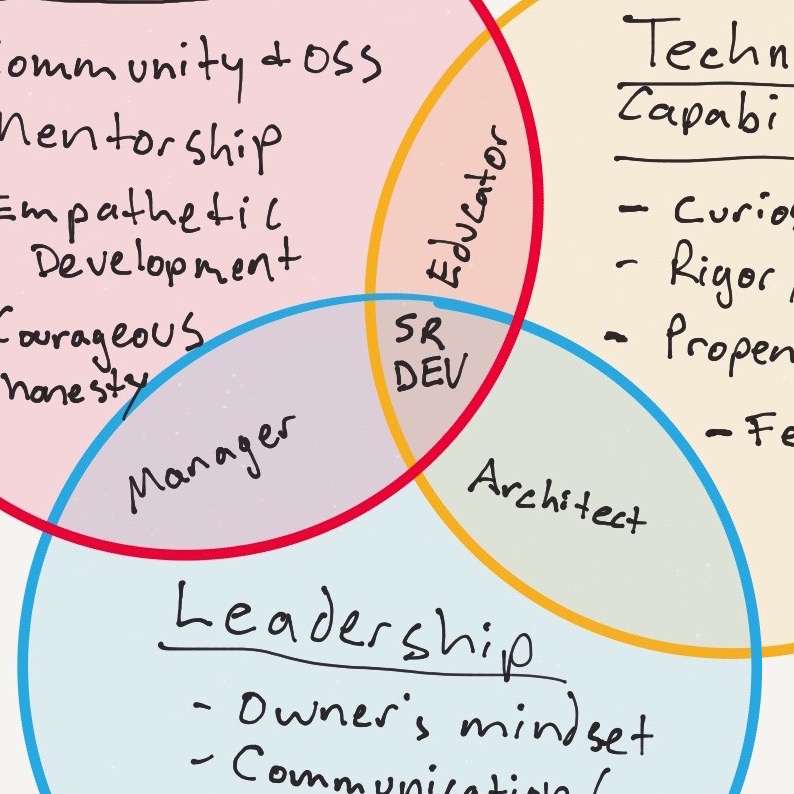 ommunity + OSS
Mentorship
Empathetic
Development
Courageous
honesty
Educator
Techn
Capabi
- Curios
- Rigor
- Propen
- Fe
SR
DEV
Manager
Architect
Leadership
- Owner's mindset
- Communication/